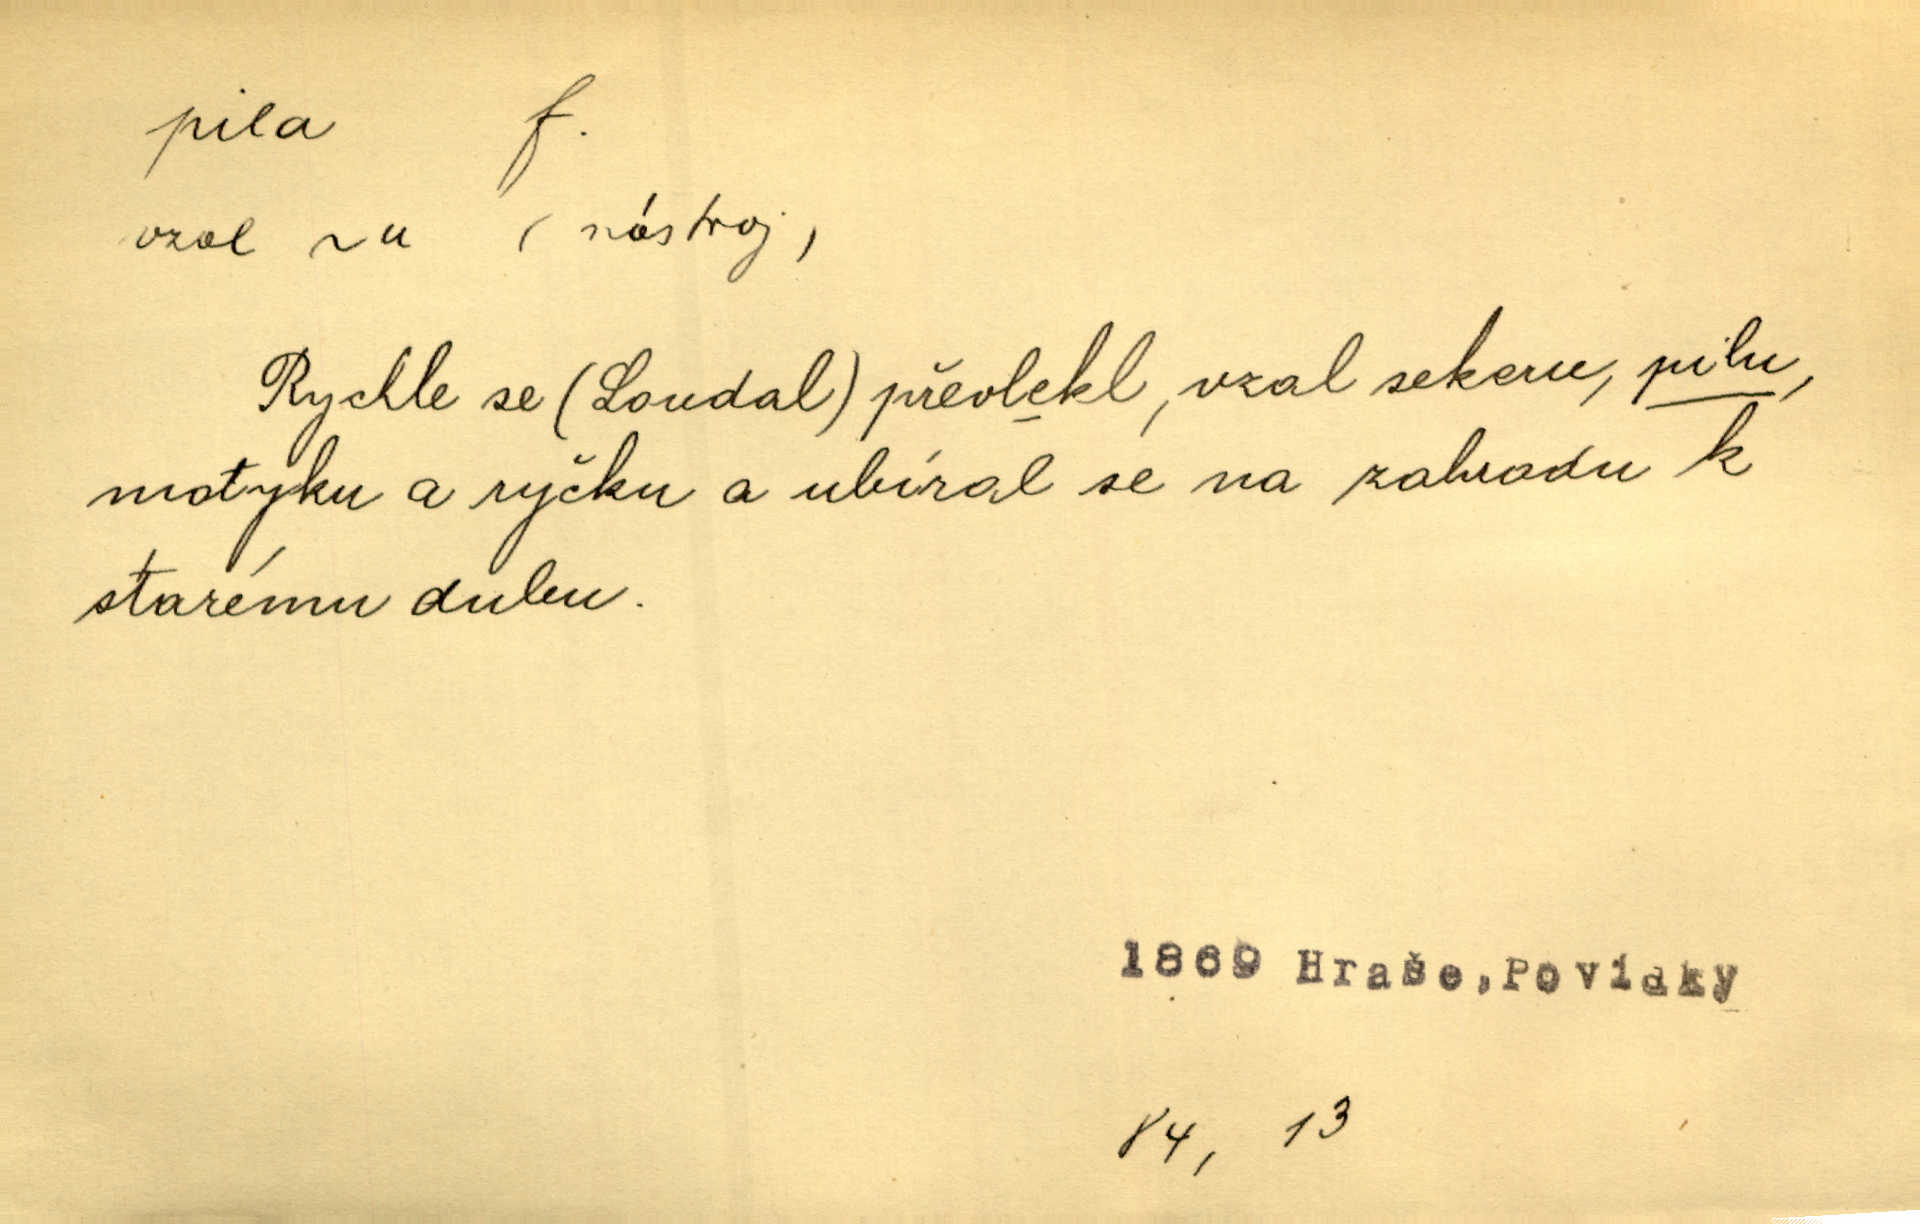 pila f.
vzal ~u (nástroj)
Rychle se (Loudal) převlekl, vzal sekeru, pilu,
motyku a rýčku a ubíral se na zahradu k
starému dubu.
1869 Hraše,Povídky
84, 13